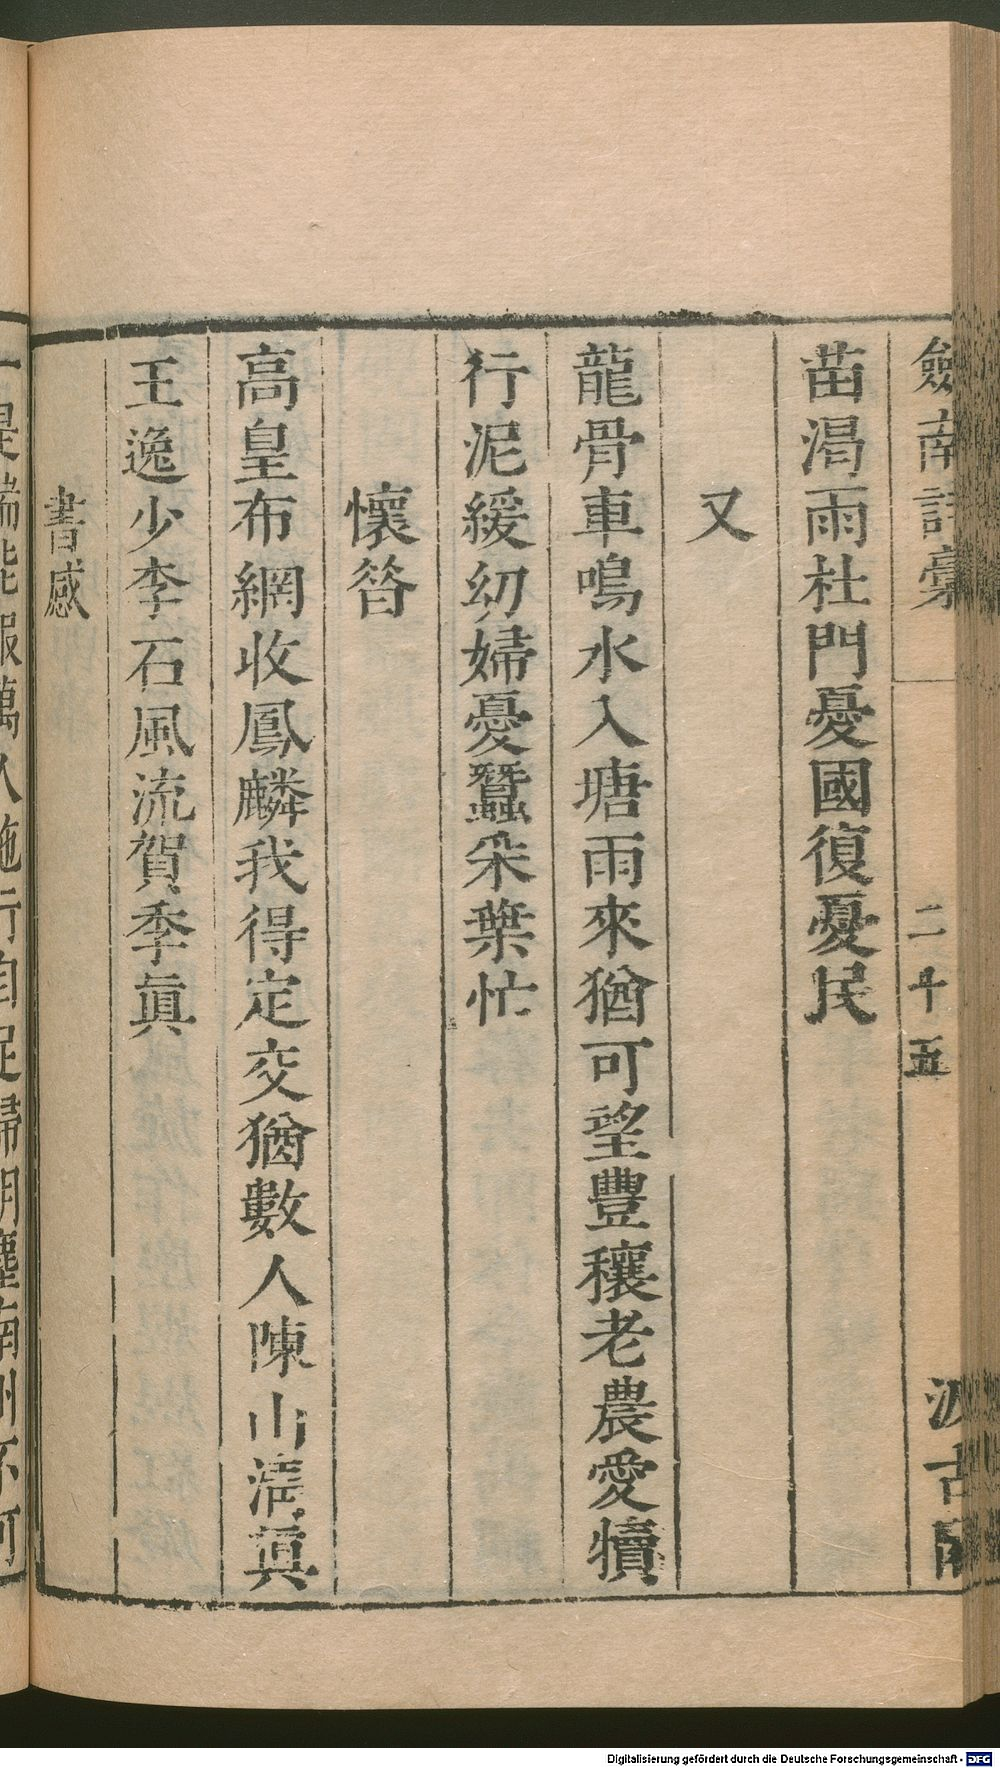 劍南詩稾 二十五 汲古閣
苗渴雨杜門憂國復憂民
又
龍骨車鳴水入塘雨來猶可望豐穰老農愛犢
行泥緩幼婦憂蠶采葉忙
懷昝
高皇布網收鳳麟我得定交猶數人陳山淸眞
王逸少李石風流賀季眞
書感
Digitalisierung gefördert durch die Deutsche Forschungsgemeinschaft - DFG